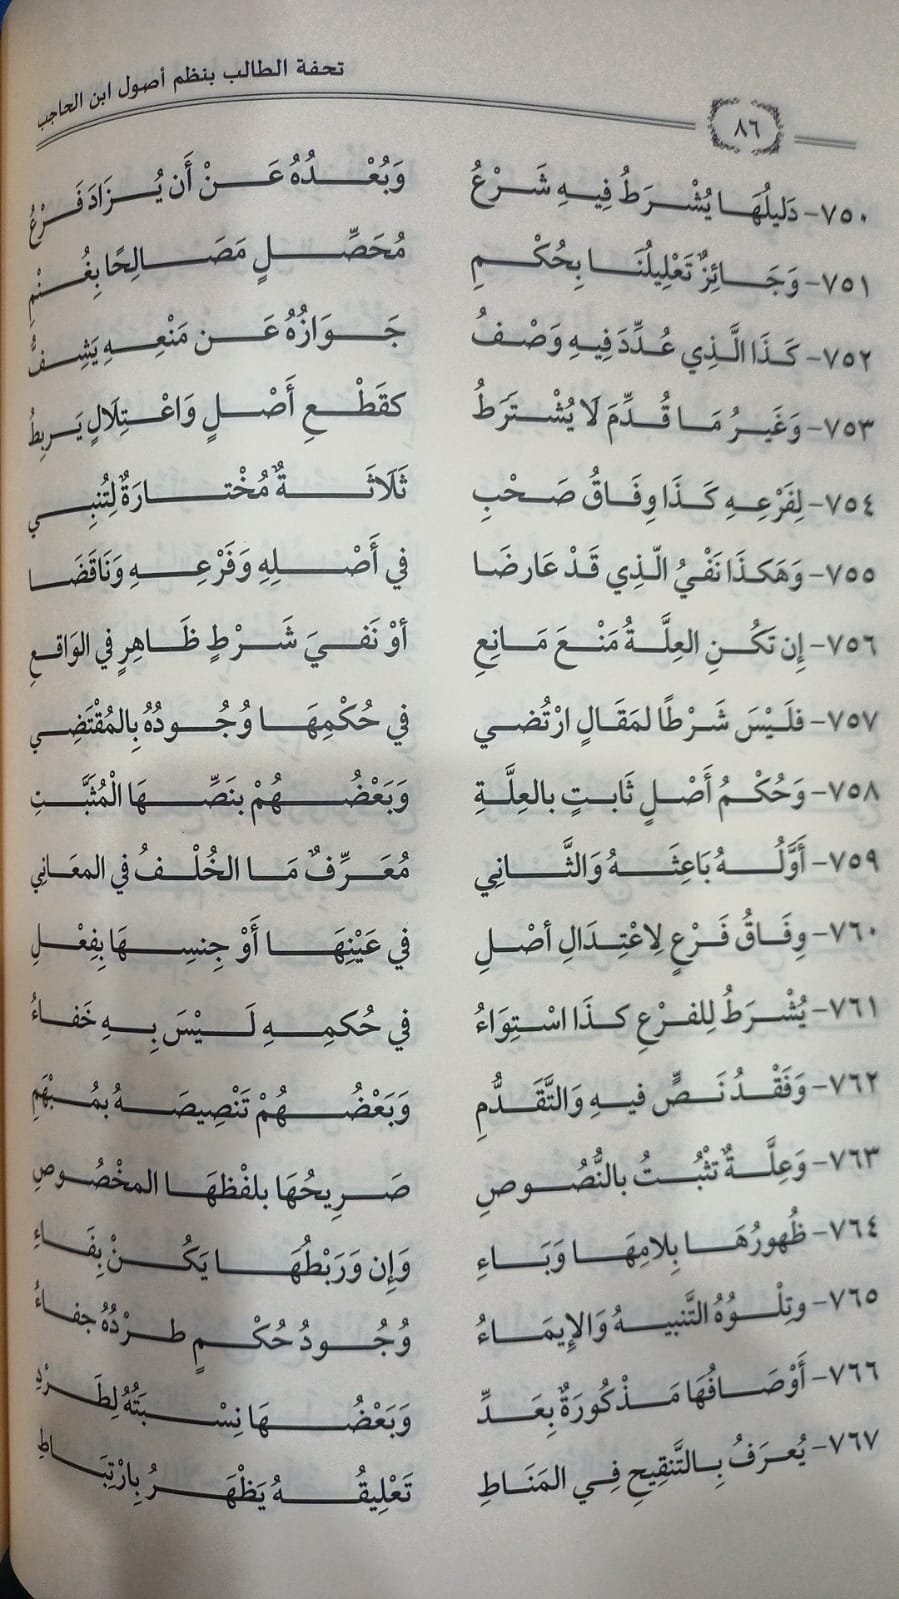 تحفة الطالب بنظم أصول ابن الحاجب
٨٦
٧٥٠- دَلِيلُهَا يُشْرَطُ فِيهِ شَرْعُ وَبُعْدُهُ عَنْ أَن يُزَادَ فَرْعُ
٧٥١- وَجَائِزٌ تَعْلِيلُنَا بِحُكْمِ مُحَصِّلٍ مَصَالِحًا بِغُنْمِ
٧٥٢- كَذَا الَّذِي عُدِّدَ فِيهِ وَصْفُ جَوَازُهُ عَن مَنْعِهِ يَشِفُّ
٧٥٣- وَغَيرُ مَا قُدِّمَ لَا يُشْتَرَطُ كقَطْعِ أَصْلٍ وَاعْتِلَالٍ يَربِطُ
٧٥٤- لِفَرْعِهِ كَذَا وِفَاقُ صَحْبِ ثَلَاثَةٌ مُخْتارَةٌ لِتُنبِي
٧٥٥- وَهَكذَا نَفْيُ الَّذِي قَدْ عَارضَا في أَصْلِهِ وَفَرْعِهِ وَنَاقَضَا
٧٥٦- إِن تَكُنِ العِلَّةُ مَنْعَ مَانِعِ أوْ نَفيَ شَرْطٍ ظَاهِرٍ في الوَاقعِ
٧٥٧- فلَيْسَ شَرْطًا لمَقَالٍ ارْتُضي في حُكْمِهَا وُجُودُهُ بِالمُقْتَضِي
٧٥٨- وَحُكْمُ أَصْلٍ ثَابتٍ بالعِلَّةِ وَبَعْضُهُمْ بنَصِّهَا الْمُثَبَّتِ
٧٥٩- أَوَّلُهُ بَاعِثَهُ وَالثَّانِي مُعَرِّفٌ مَا الخُلْفُ في المعَانِي
٧٦٠- وِفَاقُ فَرْعٍ لِاعْتِدَالِ أصْلِ في عَيْنِهَا أوْ جِنسِهَا بِفِعْلِ
٧٦١- يُشْرَطُ لِلفرْعِ كذَا اسْتِوَاءُ في حُكمِهِ لَيْسَ بِهِ خَفاءُ
٧٦٢- وَفَقْدُ نَصٍّ فيهِ وَالتَّقَدُّمِ وَبَعْضُهُمْ تَنْصِيصَهُ بمُبْهَمِ
٧٦٣- وَعِلَّةٌ تثْبُتُ بالنُّصُوصِ صَرِيحُهَا بلفْظهَا المخْصُوصِ
٧٦٤- ظُهورُهَا بِلامِهَا وَبَاءِ وَإن وَرَبْطُهَا يَكُنْ بِفَاءِ
٧٦٥- وتِلْوُهُ التَّنبيهُ وَالإِيمَاءُ وُجُودُ حُكْمٍ طرْدُهُ جفاءُ
٧٦٦- أَوْصَافُهَا مَذْكُورَةٌ بِعَدِّ وَبَعْضُهَا نِسْبَتُهُ لِطَرْدِ
٧٦٧- يُعرَفُ بِالتَّنقِيحِ فِي المَنَاطِ تَعْلِيقُهُ يَظْهَرُ بِارْتِبَاطِ